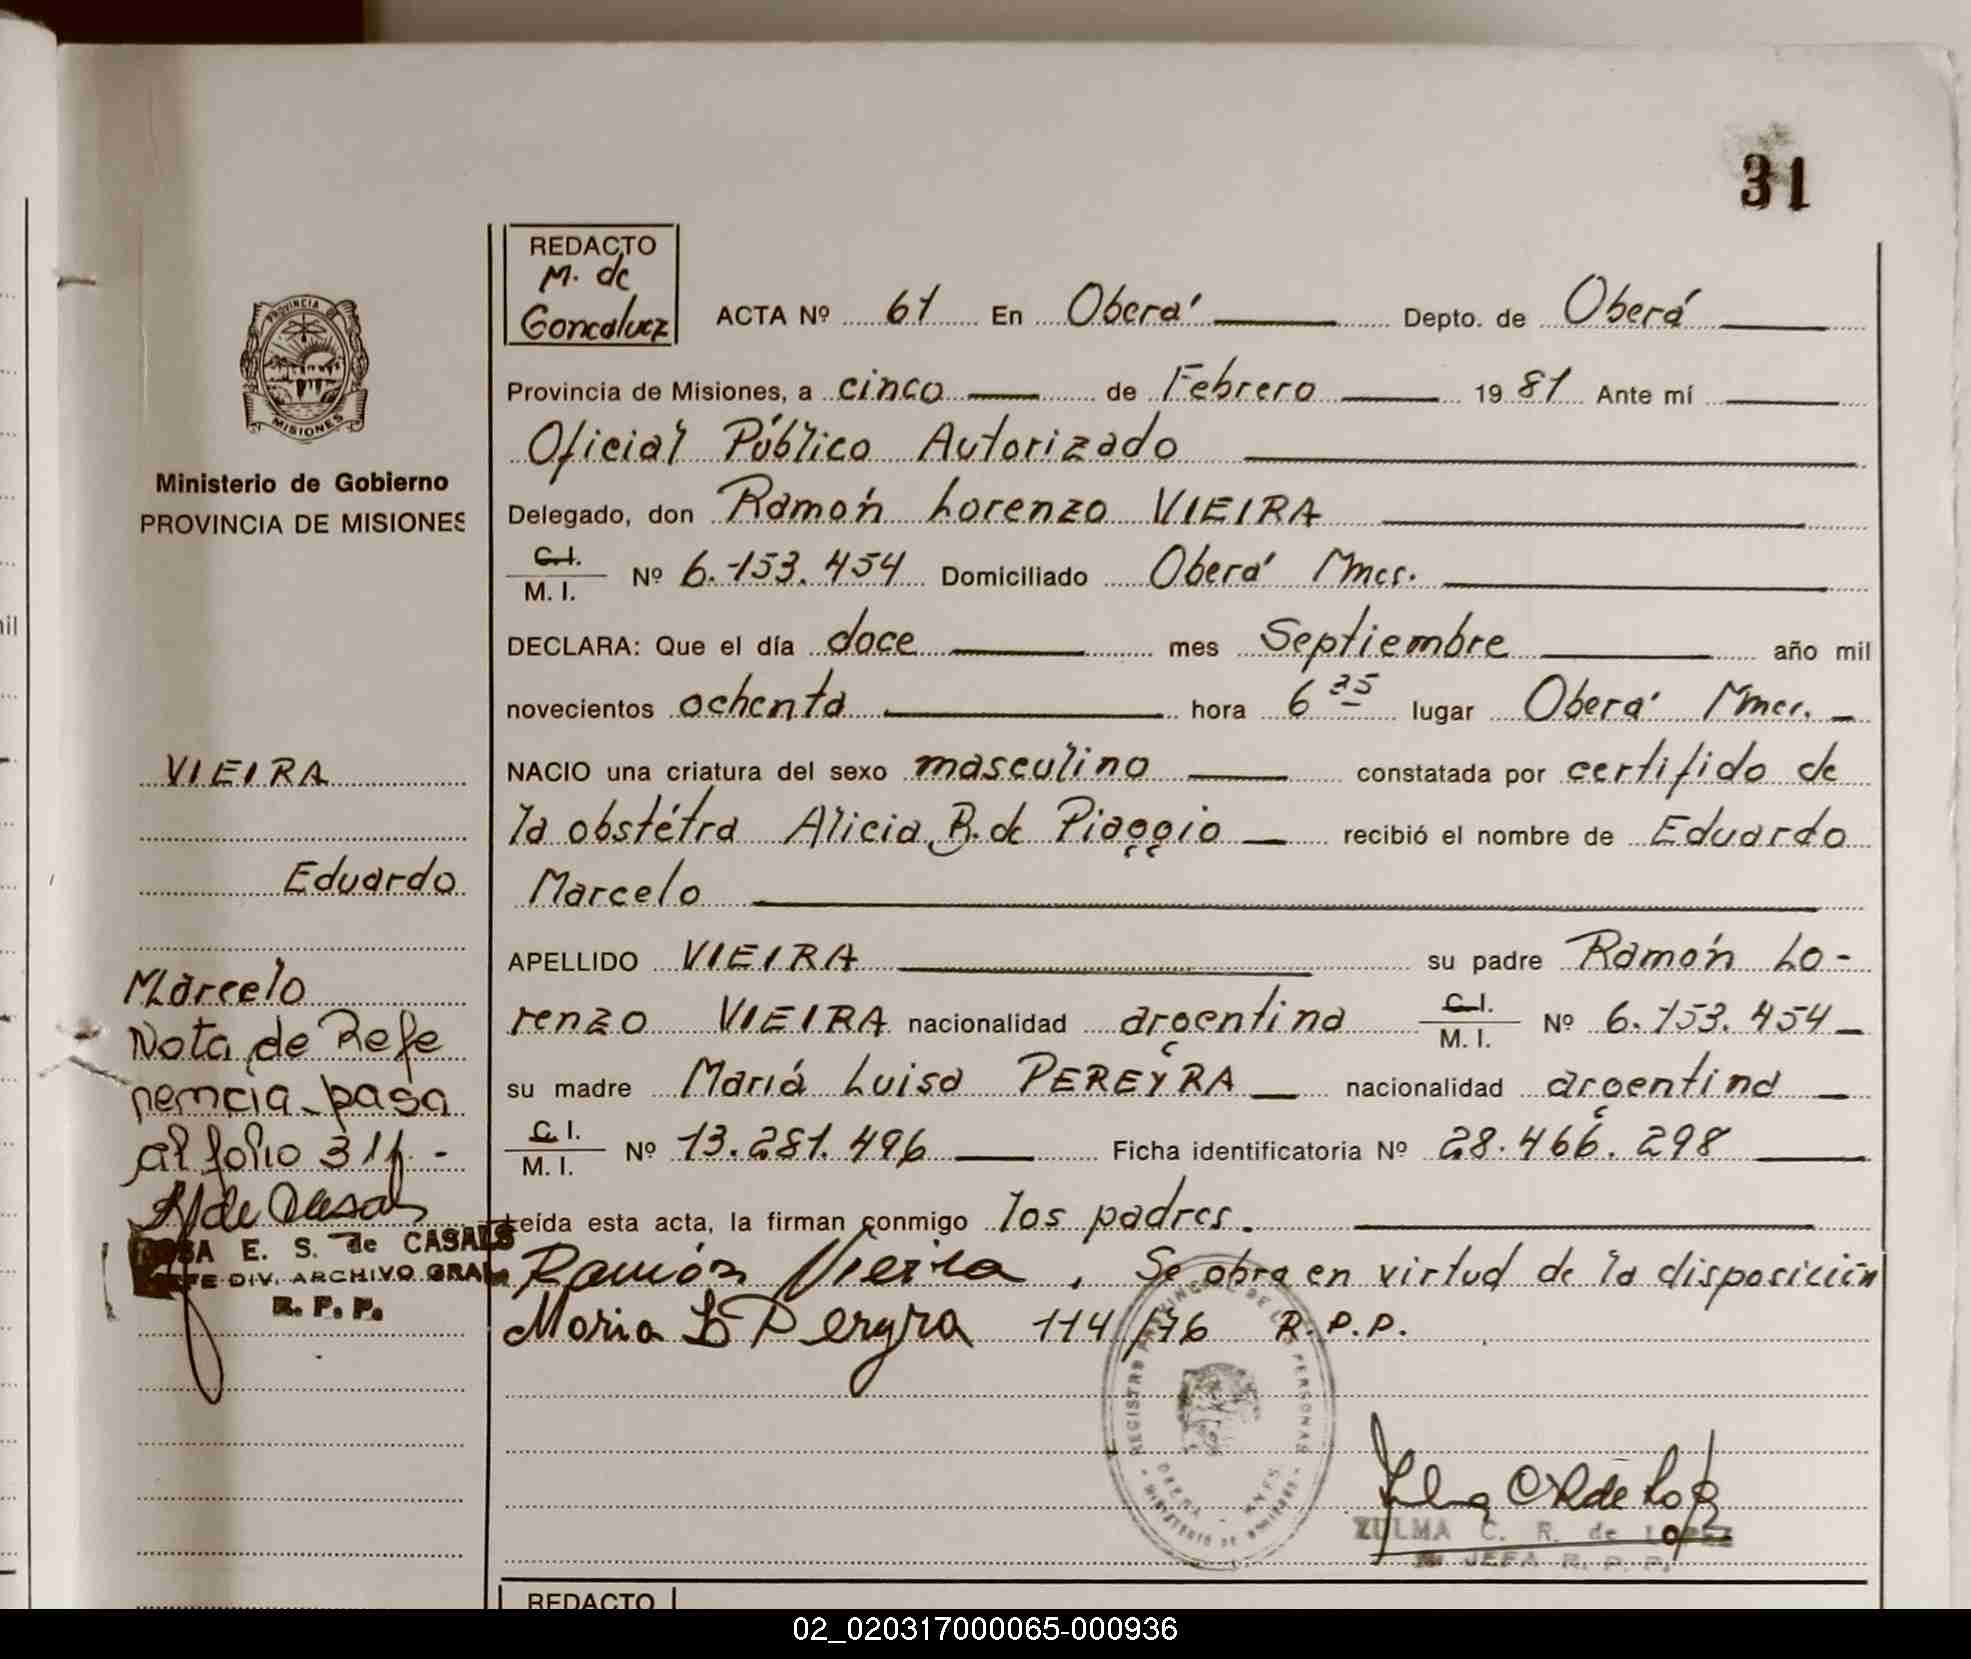 31
REDACTO
M. de
Goncaluez
ACTA Nº 61 En Oberá Depto. de Oberá
Provincia de Misiones, a cinco de Febrero 1981 Ante mí
Oficial Público Autorizado
Delegado, don Ramón Lorenzo VIEIRA
C.I.
M. I. Nº 6.153.454 Domiciliado Oberá Mnes.
DECLARA: Que el día doce mes Septiembre año mil
novecientos ochenta hora 6 35 lugar Oberá Mnes.
NACIO una criatura del sexo masculino constatada por certifido de
la obstétra Alicia B. de Piaggio recibió el nombre de Eduardo
Marcelo
APELLIDO VIEIRA su padre Ramón Lo-
renzo VIEIRA nacionalidad argentina C.I.
M. I. Nº 6.153.454
su madre María Luisa PEREYRA nacionalidad argentina
C. I.
M. I. Nº 13.281.496 Ficha identificatoria Nº 28.466.298
Leída esta acta, la firman conmigo los padres.
Ramón Vieira . Se obra en virtud de la disposición
Maria L Pereyra 114/76 R.P.P.
REGISTRO PROVINCIAL DE LAS PERSONAS
OBERA - MNES
MINISTERIO DE GOBIERNO
ZULMA C. R. de LOPEZ
JEFA R. P. P.
PROVINCIA
MISIONES
Ministerio de Gobierno
PROVINCIA DE MISIONES
VIEIRA
Eduardo
Marcelo
Nota de Refe
rencia pasa
al folio 31f.-
de Casals
ROSA E. S. de CASALS
JEFE DIV. ARCHIVO GRAL
R. P. P.
REDACTO
02_020317000065-000936